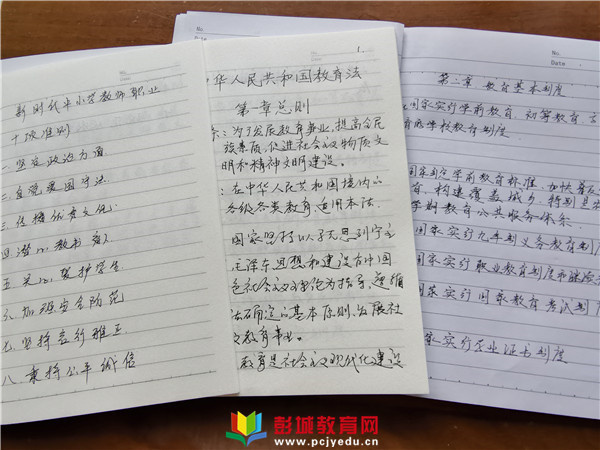 新时代中小学教师职业
十项准则
一 坚定政治方向
二 自觉爱国守法
三 传播优秀文化
四 潜心教书育人
五 关心爱护学生
六 加强安全防范
七 坚持言行雅正
八 秉持公平诚信
1.
中华人民共和国教育法
第一章总则
为了发展教育事业,提高全民
族素质,促进社会主义物质文
明和精神文明建设。
在中华人民共和国境内的
各级各类教育,适用本法.
国家坚持以马克思列宁主
毛泽东思想和建设有中国
色社会主义理论为指导,遵循
法确定的基本原则,发展社
义教育事业.
教育是社会主义现代化建设
No
Date
第二章 教育基本制度
国家实行学前教育、初等教育、
学校教育制度
国家制定学前教育标准,加快普及
育,构建覆盖城乡,特别是
学前教育公共服务体系.
国家实行九年制义务教育制度
国家实行职业教育制度和继续
国家实行国家教育考试制度
家实行学业证书制度
彭城教育网
www.pcjyedu.cn